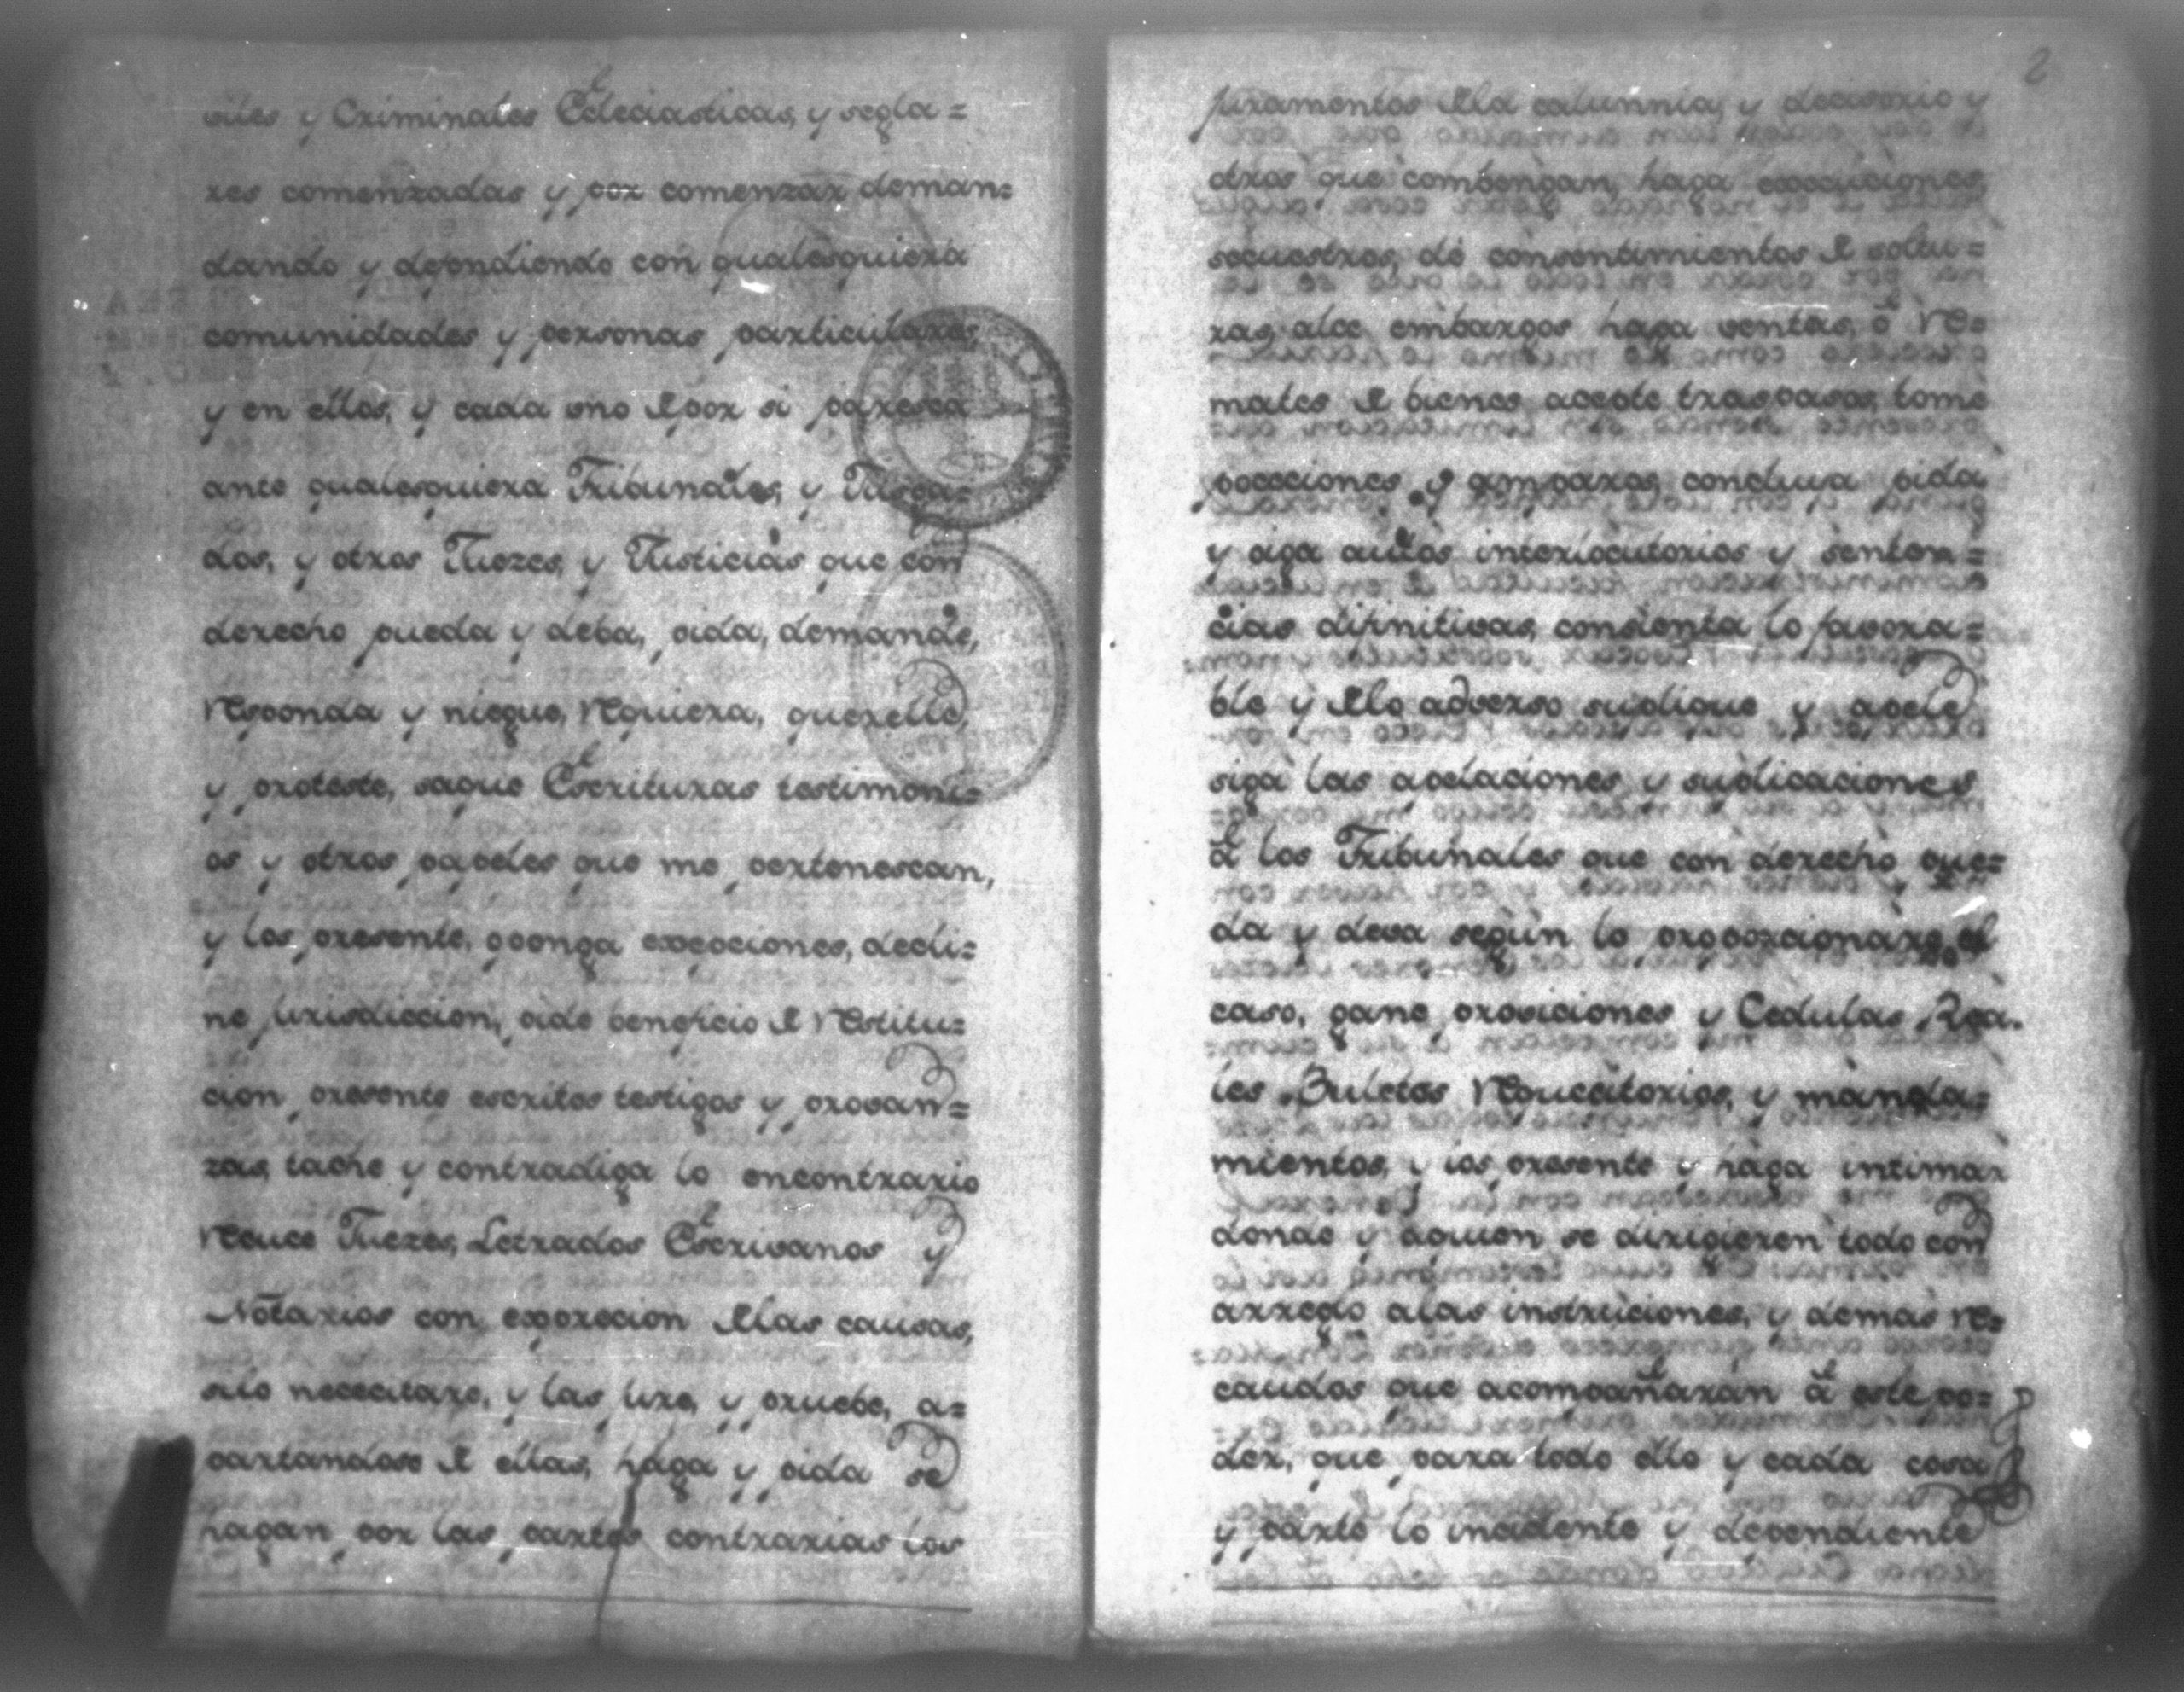 viles y Criminales Ecleciasticas, y segla=
res comenzadas y por comenzar deman=
dando y defendiendo con qualesquiera
comunidades y personas particulares,
y en ellos, y cada uno de por si paresca
ante qualesquiera Tribunales, y Jusga=
dos, y otros Juezes, y Justicias que con
derecho pueda y deba, pida, demande,
Responda y niegue, Requiera, querelle,
y proteste, saque Escrituras testimoni=
os y otros papeles que me pertenescan,
y los presente, oponga excepciones, decli=
ne jurisdiccion, pida beneficio de Restitu=
cion presente escritos testigos y provan=
zas, tache y contradiga lo encontrario
Recuce Juezes, Letrados Escrivanos y
Notarios con exprecion de las causas,
silo nececitare, y las jure, y pruebe, a=
partandose de ellas, haga y pida se
hagan por las partes contrarias los
2
juramentos de la calunnia, y decisorio y
otros que combengan, haga execuciones,
secuestros, dé consentimientos de soltu=
ras, alce embargos haga ventas, ó Re=
mates de bienes acepte traspasos, tome
poceciones y amparos, concluya pida
y oiga autos interlocutorios y senten=
cias difinitivas, consienta lo favora=
ble y de lo adverso suplique y apele
siga las apelaciones y suplicaciones
á los Tribunales que con derecho pue=
da y deva según lo proporcionare el
caso, gane proviciones y Cedulas Rea.
les Buletos Requcitorios, y manda=
mientos, y los presente y haga intimar
donde y aquien se dirigieren todo con
arreglo alas instruciones, y demas Re=
caudos que acompañaran á este po=
der, que para todo ello y cada cosa
y parte lo incidente y dependiente